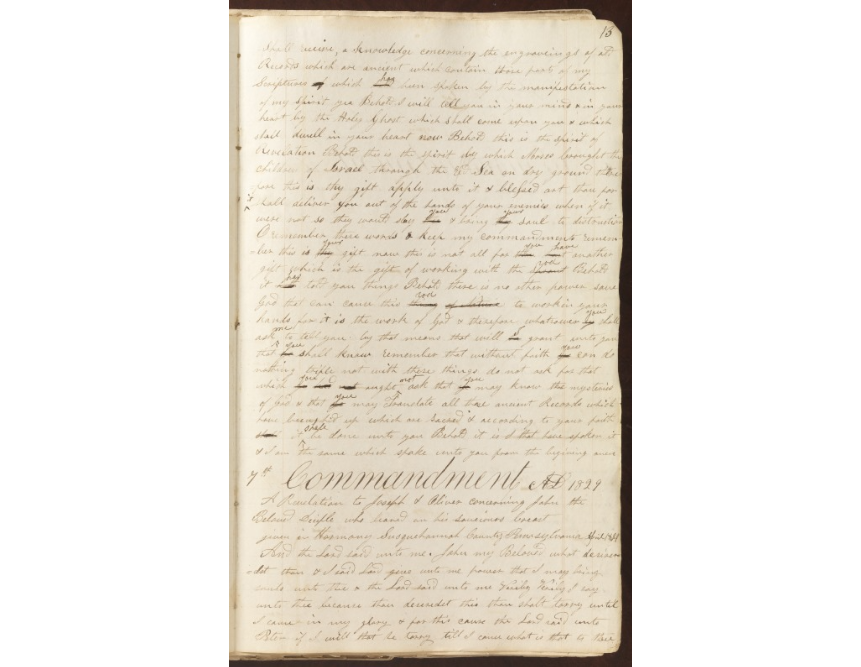 13
shall receive, a knowledge concerning the engraveings of old
Records which are ancient which contain those parts of my
Scriptures of which has been spoken by the manifestation
of my spirit yea Behold I will tell you in your mind & in your
heart by the Holy Ghost which shall come upon you & which
shall dwell in your heart now Behold this is the spirit of
revelation Behold this is the spirit by which Moses brought the
children of Israel through the red Sea on dry ground
this is thy gift apply unto it & blessed art thou for
it shall deliver you out of the hands of your enemies when if it
were not so they would slay your & bring your soul to distruction
O remember these words & keep my commandments remem-
ber this is your gift now this is not all for you have another
gift which is the gift of working with the rod Behold
it has told you things Behold there is no other power save
God that can cause this rod to work in your
hands for it is the work of God & therefore whatsoever you shall
ask me to tell you by that means that will I grant unto you
that you shall know remember that without faith you can do
nothing trifle not with these things do not ask for that
which you ought not ask that you may know the mysteries
of God & that you may Translate all those ancient Records which
have been hid up which are Sacred & according to your faith
shall it be done unto you Behold it is I that have spoken it
& I am the same which spoke unto you from the begining amen
7th Commandment AD 1829
A Revelation to Joseph & Oliver concerning John the
Beloved Deciple who leaned on his saviours breast
given in Harmony Susquehannah County Pennsylvania
And the Lord said unto me John my Beloved what desires-
-dst thou & I said Lord give unto me power that I may bring
souls unto thee & the Lord said unto me Verily Verily I say
unto thee because thou desiredst this thou shalt tarry until
I come in my glory & for this cause the Lord said unto
Peter if I will that he tarry till I come what is that to thee